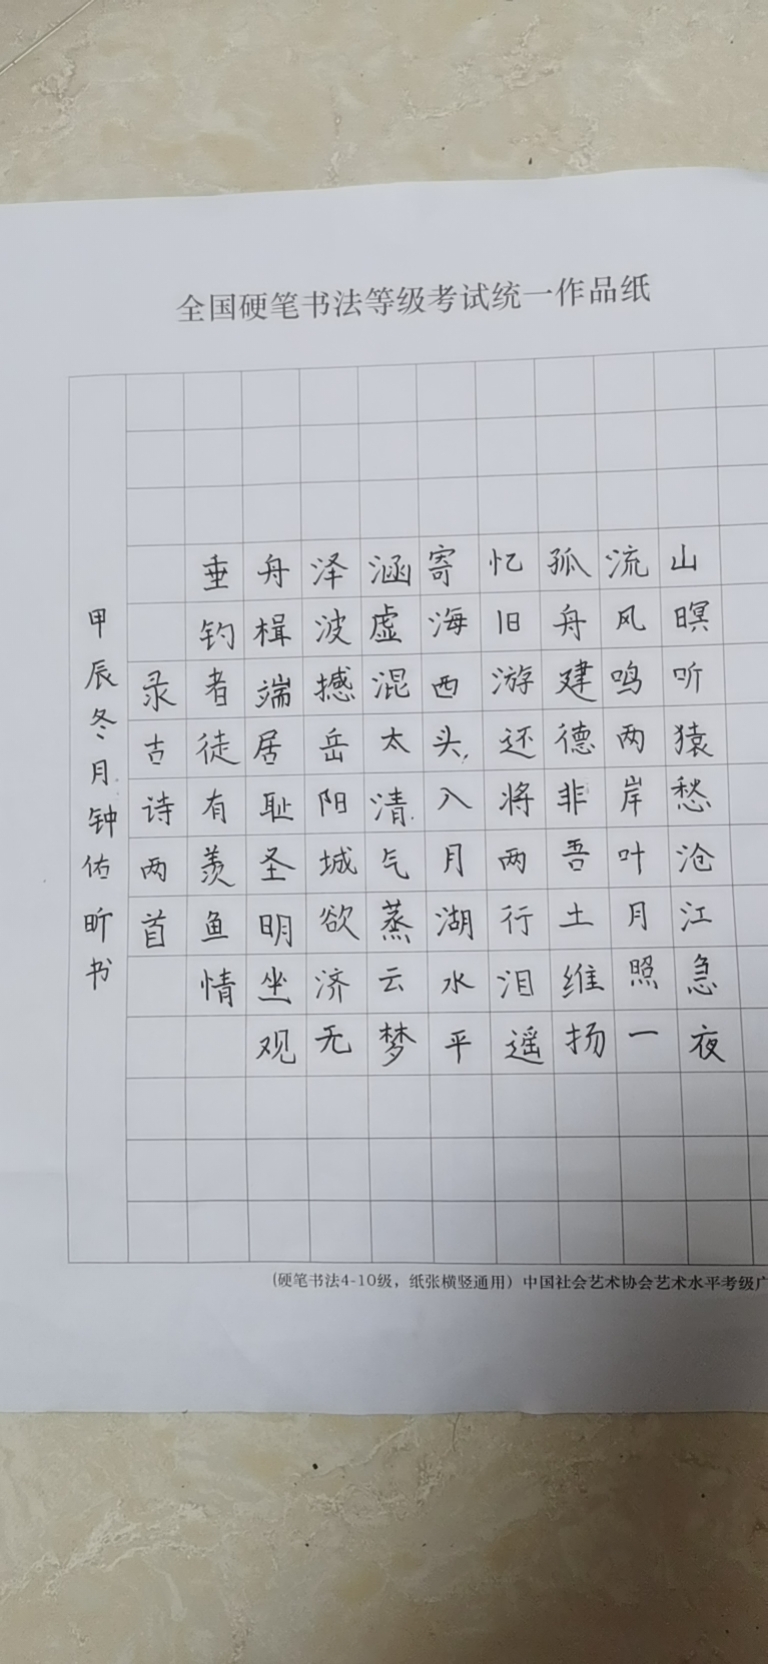 全国硬笔书法等级考试统一作品纸
山暝听猿愁沧江急夜
流风鸣两岸叶月照一
孤舟建德非吾土维扬
忆旧游还将两行泪遥
寄海西头入月湖水平
涵虚混太清气蒸云梦
泽波撼岳阳城欲济无
舟楫端居耻圣明坐观
垂钓者徒有羡鱼情
录古诗两首
甲辰冬月钟佑昕书
(硬笔书法4-10级，纸张横竖通用) 中国社会艺术协会艺术水平考级广